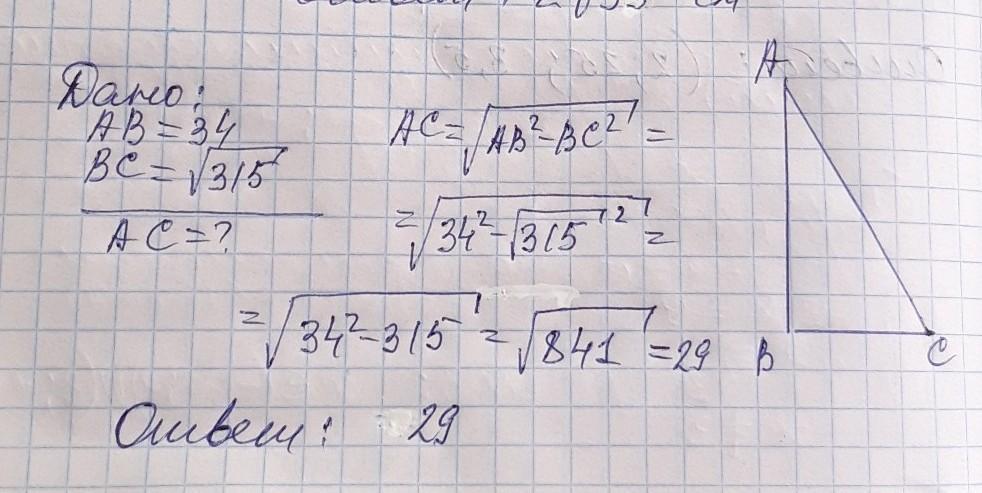 Дано:
AB = 34
BC = √315
AC = ?
AC = √AB² - BC² =
= √34² - √315² =
= √34² - 315 = √841 = 29
Ответ: 29
A
B
C